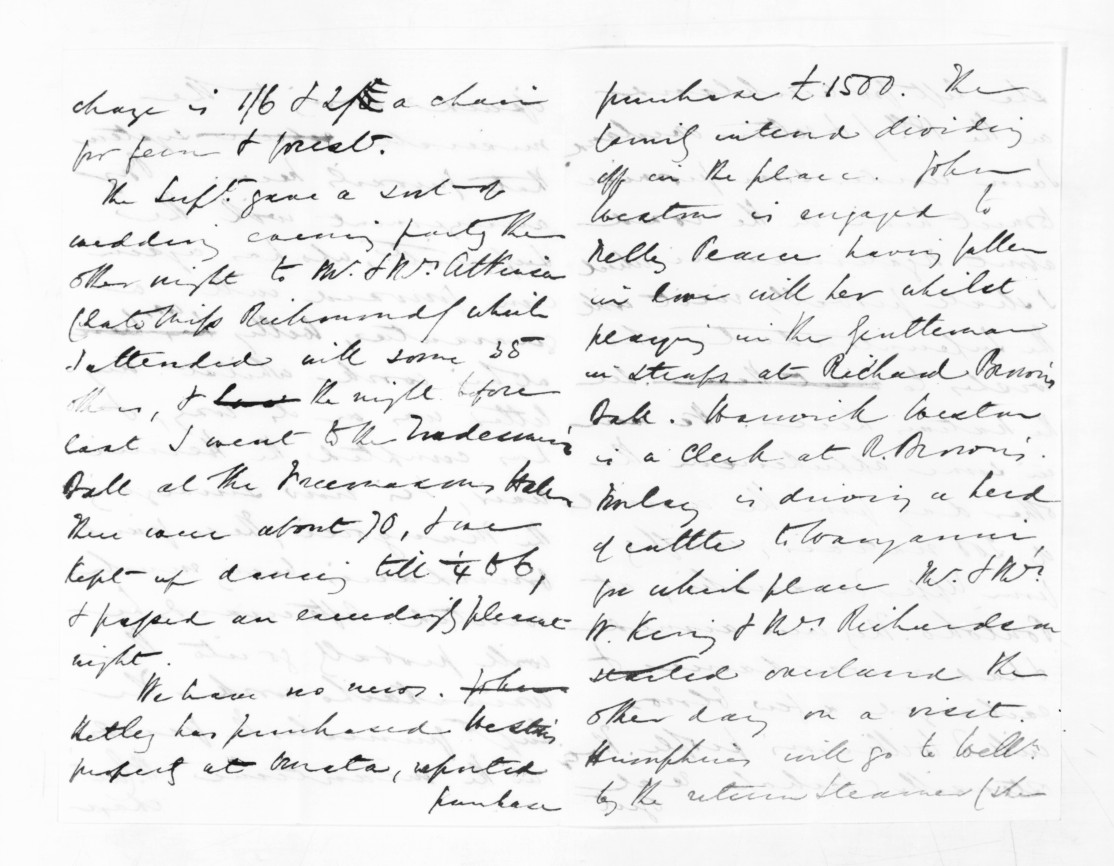 charge is 1/6 & 2/6 a chain
for fern & forest.
The Supt. gave a sort of
wedding evening party the
other night to Mr. & Mrs. Atkinson
(late Miss Richmond) which
I attended with some 35
others, & the night before
last I went to the Tradesmen's
Ball at the Freemasons Hotel
There were about 70, & we
kept up dancing till ¼ to 6,
& passed an exceedingly pleasant
night.
We have no news. John
Hetley has purchased Weston's
property at Omata, reported
purchase
purchase £1500. The
family intend dividing
off in the place. John
Weston is engaged to
Nelly Pearce having fallen
in love with her whilst
playing in the Gentleman
in Straps at Richard Brown's
Ball. Warwick Weston
is a Clerk at R. Brown's.
is driving a herd
of cattle to Wanganui,
for which place Mr. & Mrs.
W King & Mrs Richardson
started overland the
other day on a visit.
Humphries will go to Welln.
by the return Steamer (the